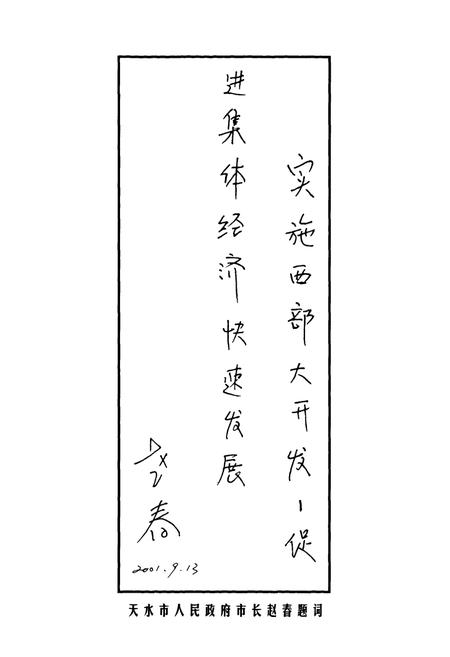 实施西部大开发，促
进集体经济快速发展
赵春
2001.9.13
天水市人民政府市长赵春题词